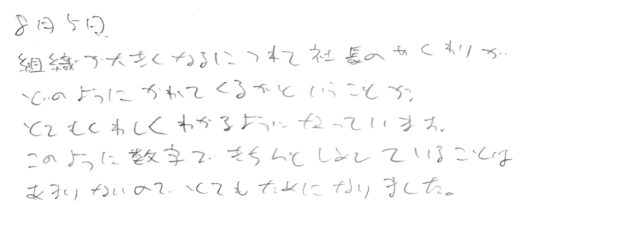 8月5日
組織が大きくなるにつれて社長のやくわりが
どのようにかわてくるかということが、
とてもくわしくわかるようになっています。
このように数字できちんとしめしていることは
あまりないのでとてもためになりました。